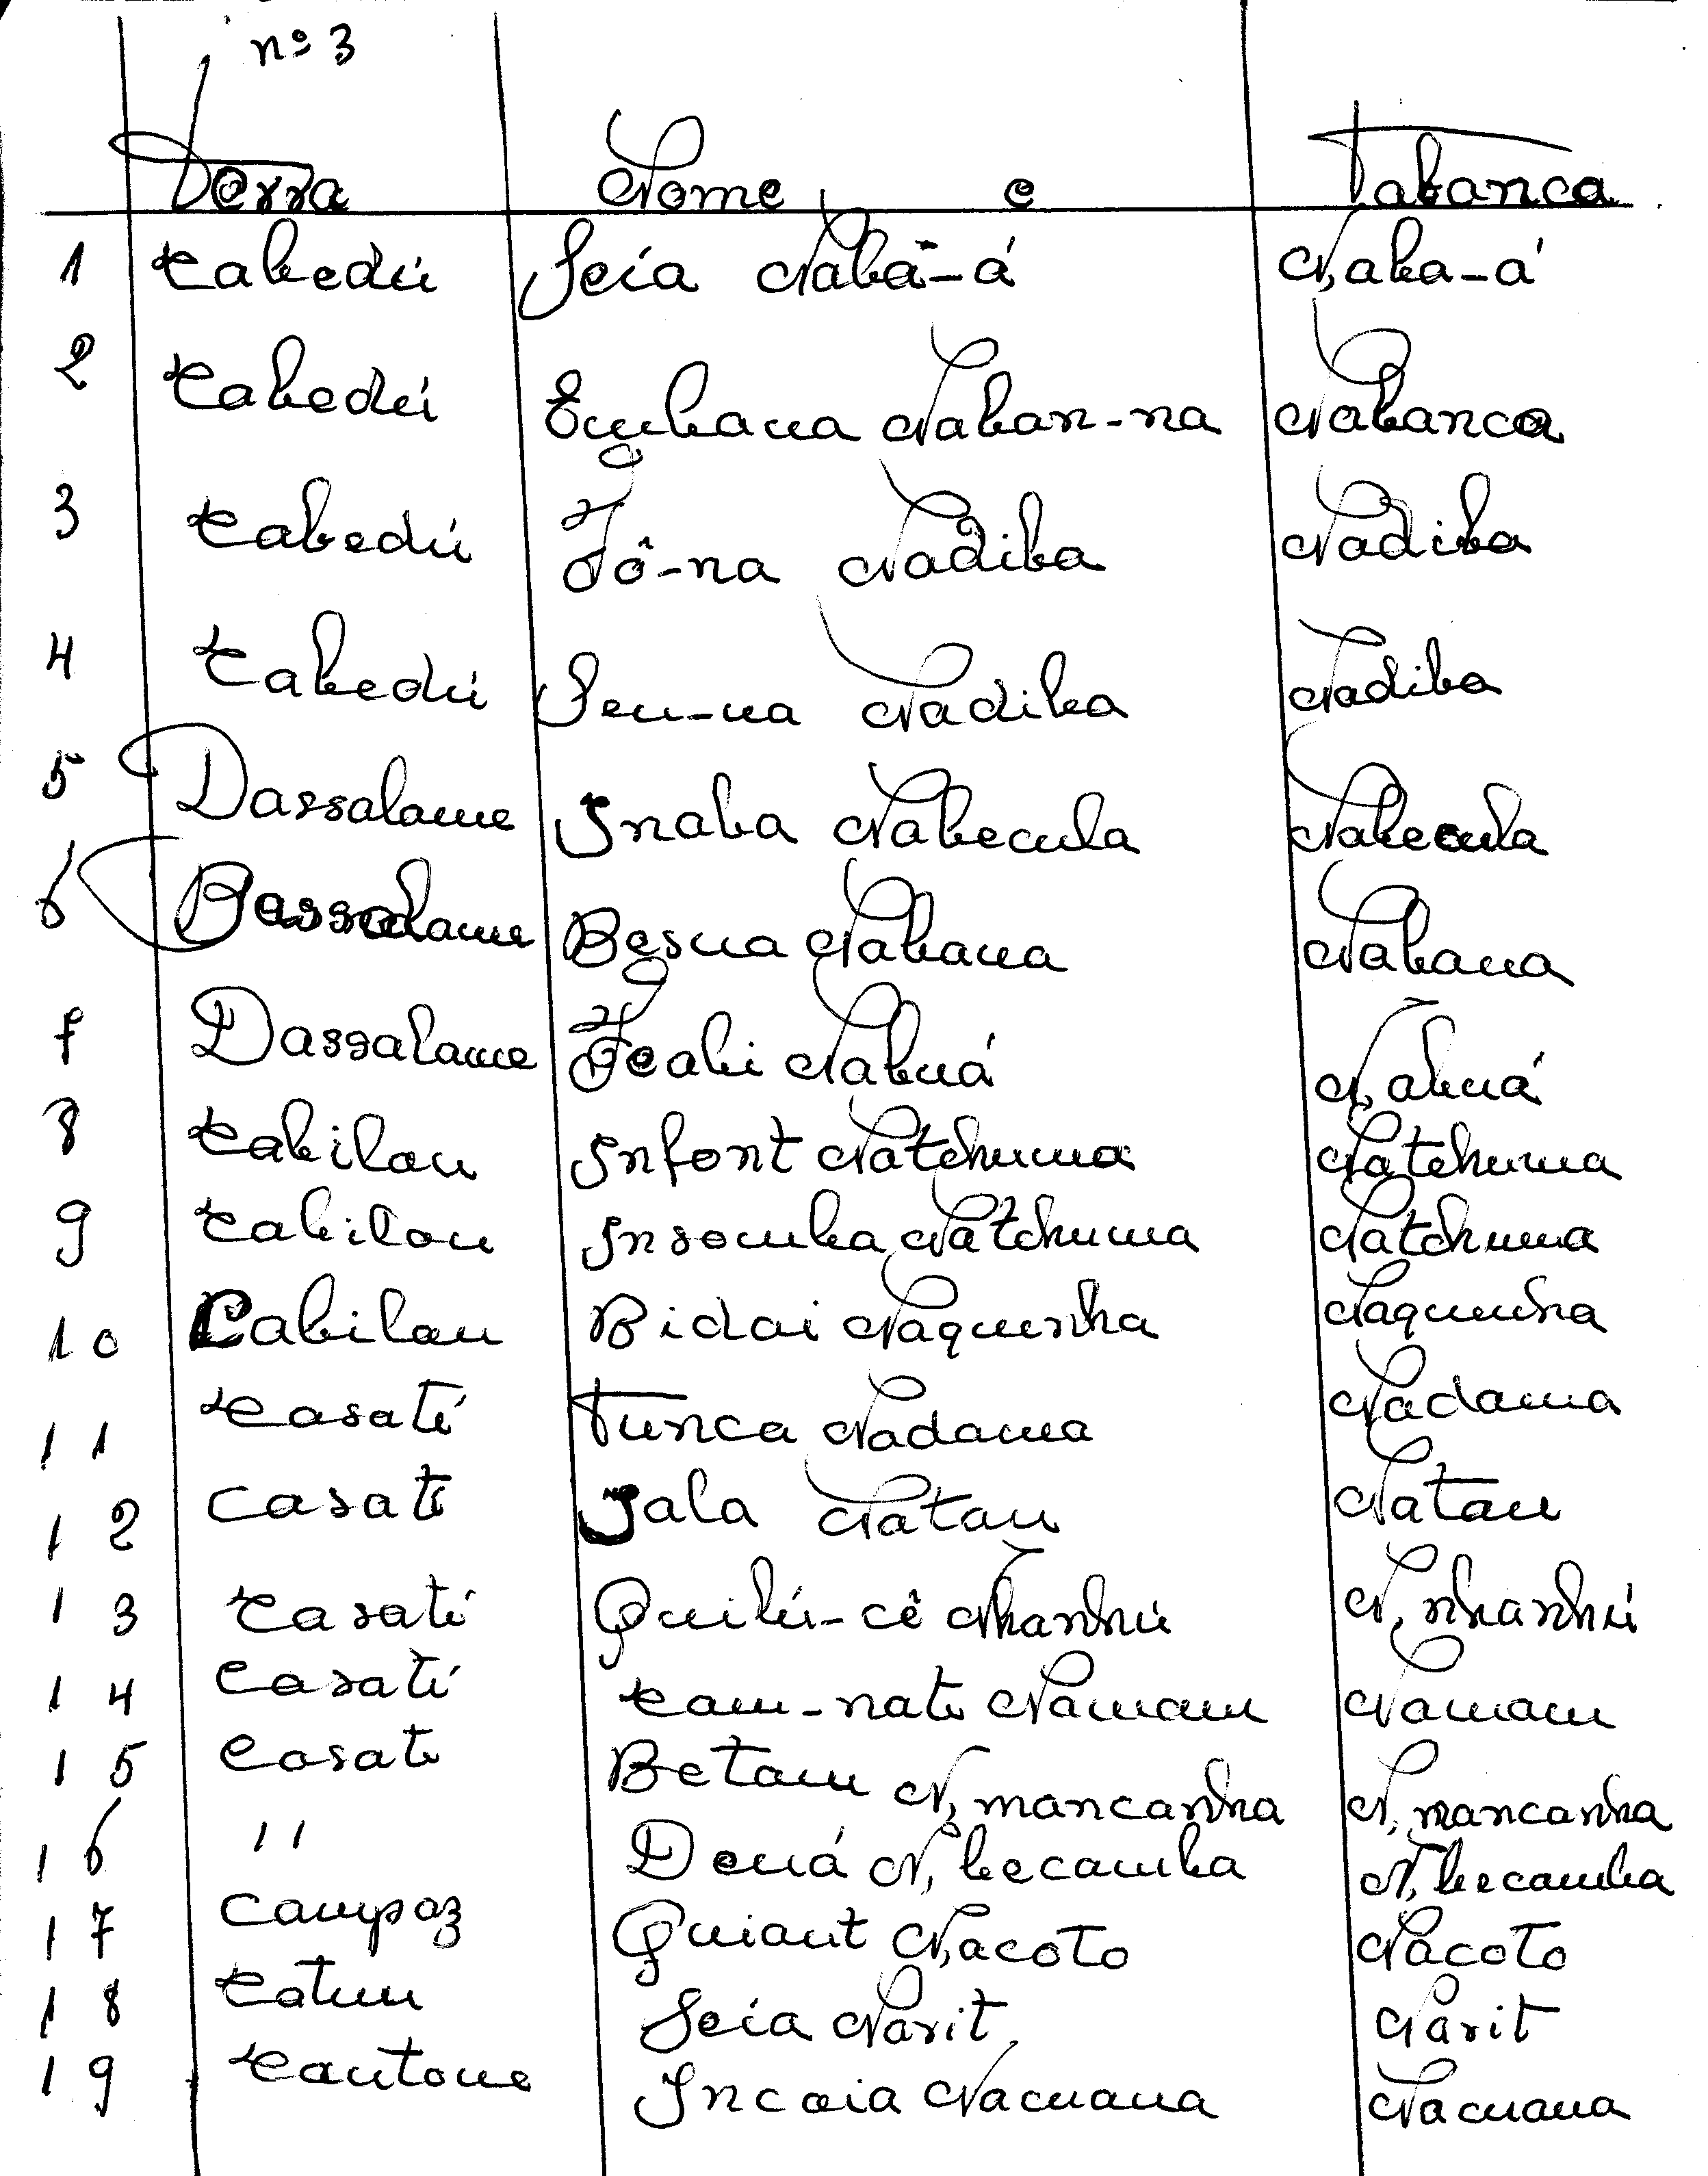 nº 3
Terra Nome e Tabanca
1 Cabedú Seia Nabã-á N, aba-á
2 Cabedú Embana Naban-na Nabanca
3 Cabedú Fô-na Nadiba Nadiba
4 Cabedú Sen-na Nadiba Nadiba
5 Dassalame Inaba Nabecula Nabecula
6 Dassalame Besna Nabana Nabana
7 Dassalame Feabi Nabuá N, abuá
8 Cabilon Infont Natchuma Natchuma
9 Cabilon Insomba Natchuma Natchuma
10 Cabilan Bidai Naquenha Naquenha
11 Casati Tunca Nadama Nadama
12 casati Iala Natan Natan
13 Casati Quilú-cê Nhanhú N, nhanhú
14 Casati Cam-nati Namam Namam
15 Casati Betam N, mancanha N, mancanha
16 " Dená N, becamba N, becamba
17 Campaz Quiant N, acoto Nacoto
18 Catun Seia Narit Narit
19 Cautone Incaia Nacuana Nacuana